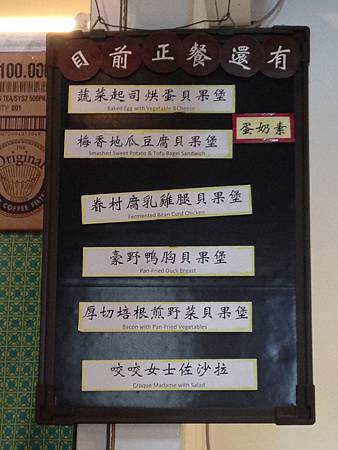 目前正餐還有
蔬菜起司烘蛋貝果堡
Baked Egg with Vegetable &Cheese
蛋奶素
梅香地瓜豆腐貝果堡
Smashed Sweet Potato & Tofu Bagel Sandwich
眷村腐乳雞腿貝果堡
Fermented Bean Curd Chicken
豪野鴨胸貝果堡
Pan-Fried Duck Breast
厚切培根煎野菜貝果堡
Bacon with Pan-Fried Vegetables
咬咬女士佐沙拉
Croque Madame with Salad
100.00
001
Original
COFFEE FILT